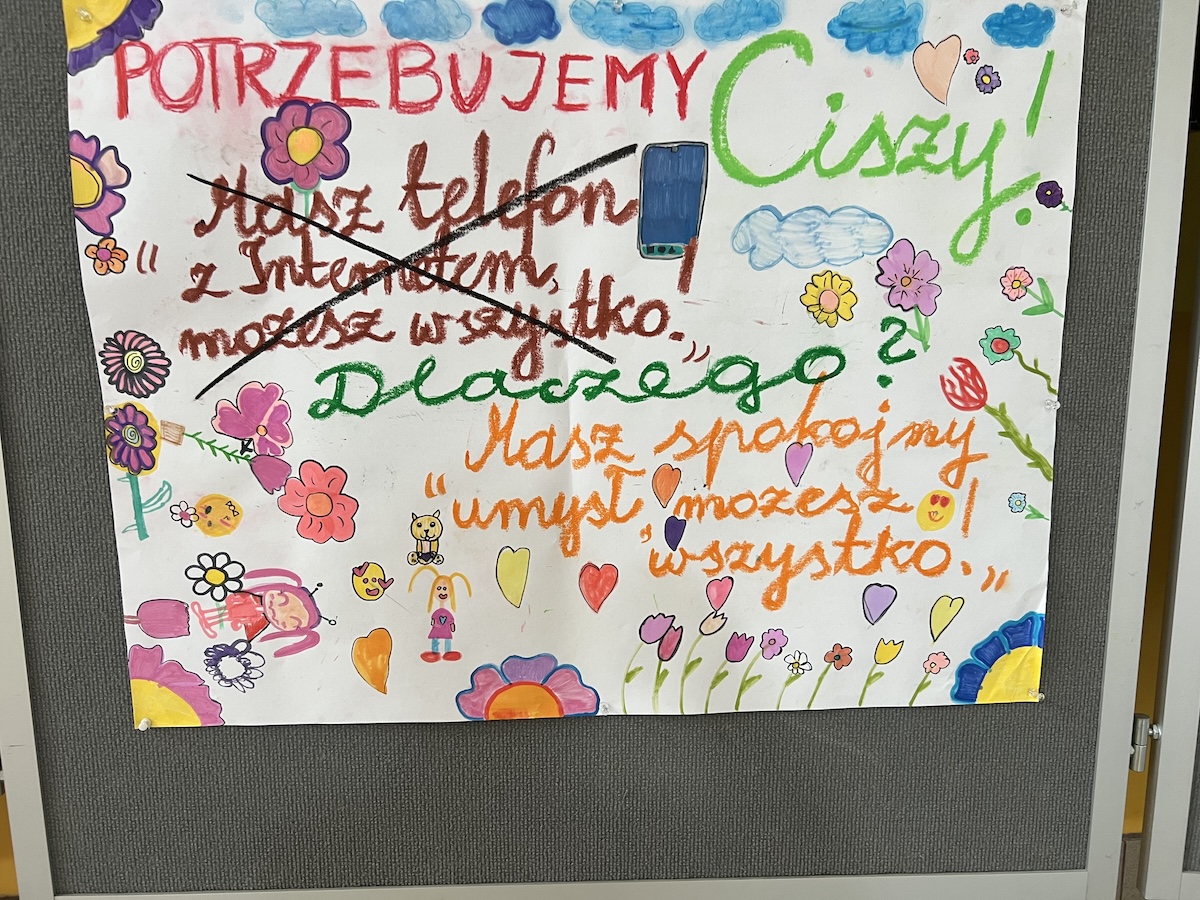 POTRZEBUJEMY Ciszy!
Masz telefon
"z Internetem,
możesz wszystko."
Dlaczego?
Masz spokojny
"umysł, możesz
wszystko."